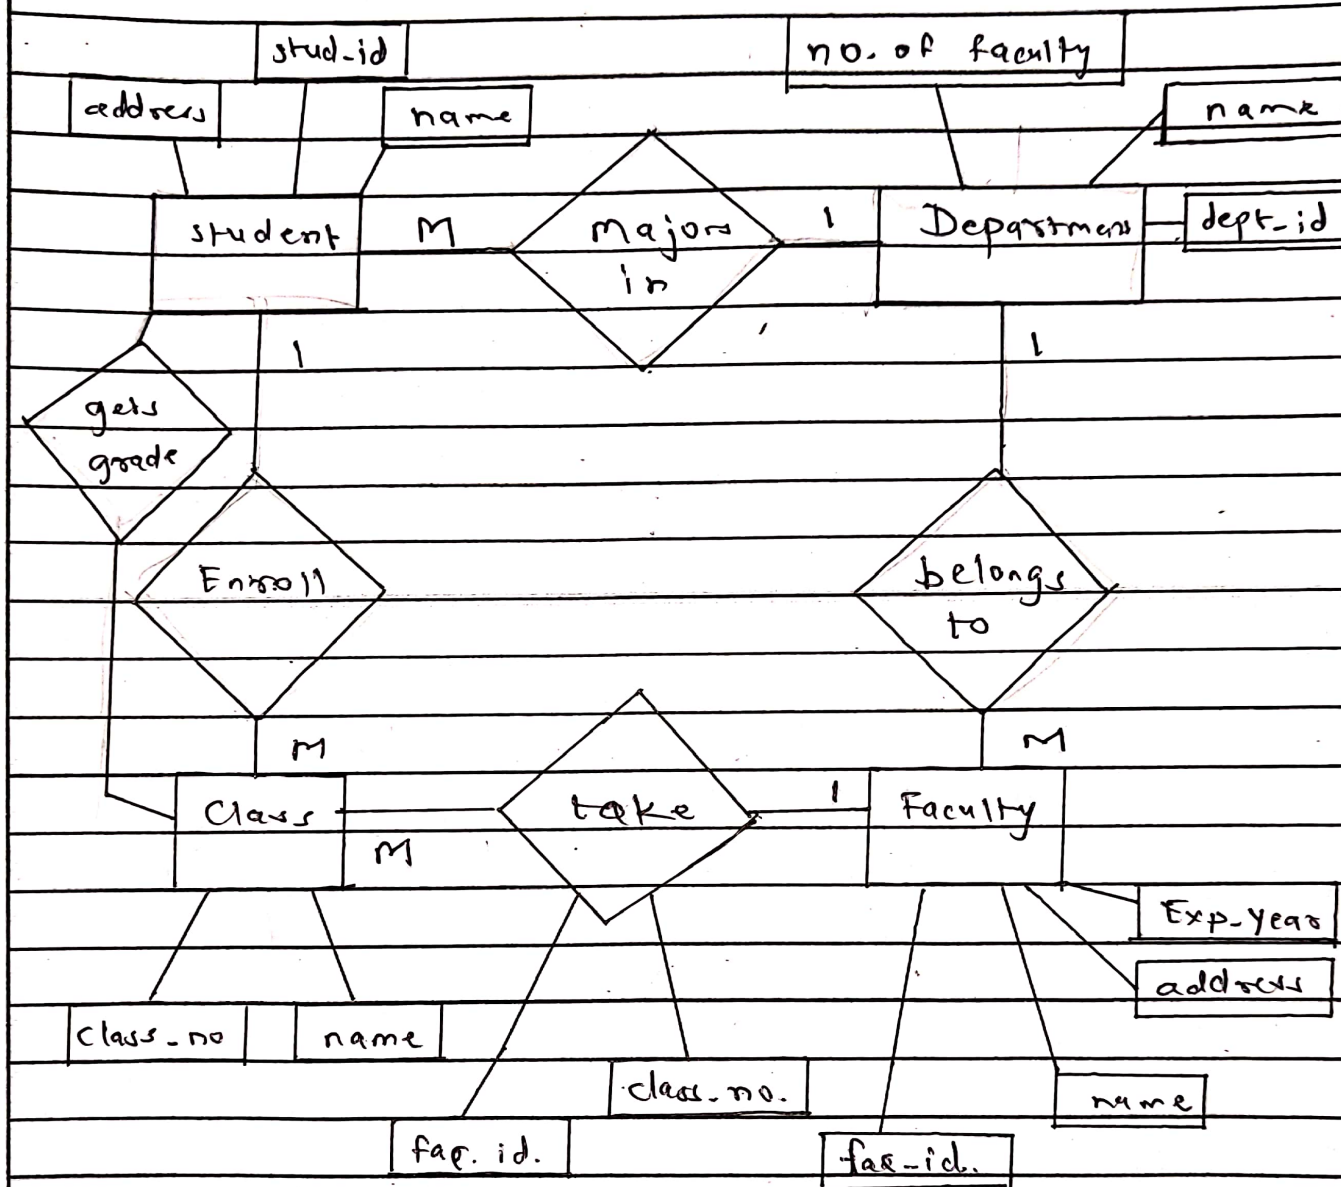 stud-id
no. of faculty
address
name
name
student
M
Majors
in
1
Department
dept-id
1
1
gets
grade
Enroll
belongs
to
M
M
Class
M
take
1
Faculty
Exp-year
address
class-no
name
class-no.
name
fac. id.
fac-id.